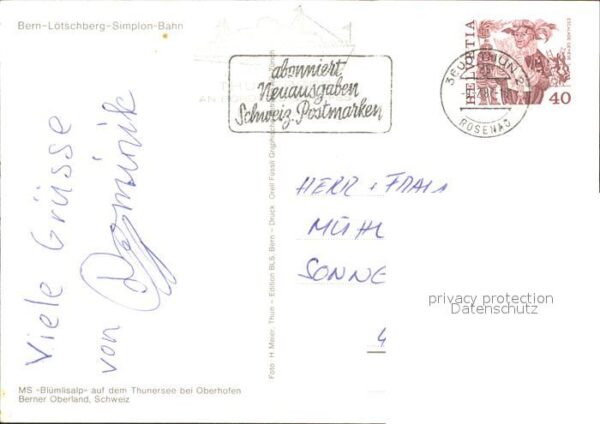 Bern-Lötschberg-Simplon-Bahn
abonniert
Neuausgaben
Schweiz. Postmarken
THUN
3600 THUN 2
ROSENAU
HELVETIA
40
Viele Grüsse
von Dominik
HERR + FRAU
MÜHL
SONNE
4
privacy protection
Datenschutz
Foto: H. Meier, Thun – Edition BLS, Bern – Druck: Orell Füssli Graphische
MS «Blümlisalp» auf dem Thunersee bei Oberhofen
Berner Oberland, Schweiz